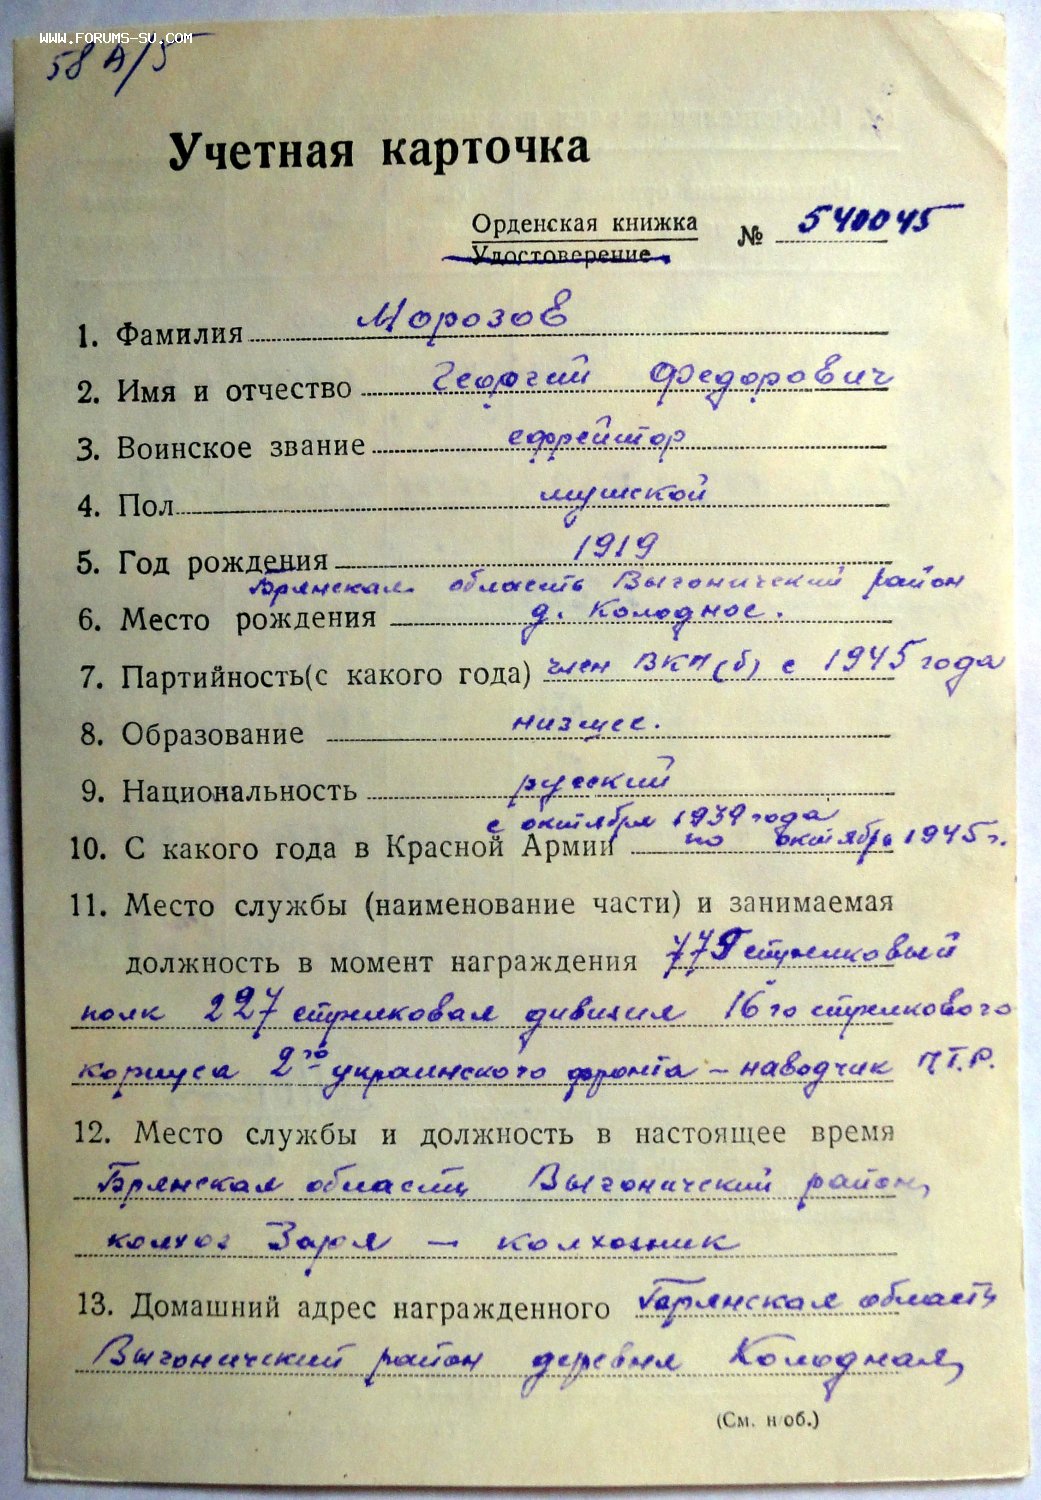 WWW.FORUMS-SU.COM
58 А/5
Учетная карточка
Орденская книжка
Удостоверение
№ 540045
1. Фамилия Морозов
2. Имя и отчество Георгий Федорович
3. Воинское звание ефрейтор
4. Пол мужской
5. Год рождения 1919
Брянская область Выгонический район
6. Место рождения д. Колодное.
7. Партийность(с какого года) член ВКП(б) с 1945 года
8. Образование низшее.
9. Национальность русский
с октября 1939 года
10. С какого года в Красной Армии по октябрь 1945 г.
11. Место службы (наименование части) и занимаемая
должность в момент награждения 779 стрелковый
полк 227 стрелковая дивизия 16го стрелкового
корпуса 2го украинского фронта – наводчик П.Т.Р.
12. Место службы и должность в настоящее время
Брянская область Выгонический район,
колхоз Заря — колхозник
13. Домашний адрес награжденного Брянская область
Выгонический район деревня Колодная,
(См. н/об.)